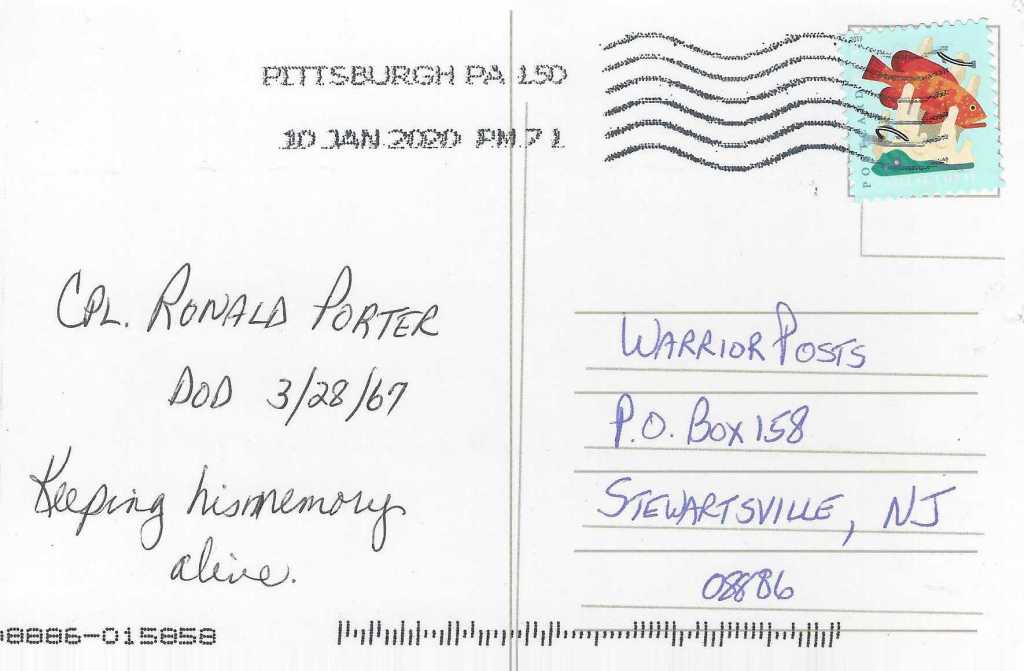 PITTSBURGH PA 150
10 JAN 2020 PM 7 L
2017
POSTCARD
CPL. RONALD PORTER
DOD 3/28/67
Keeping his memory
alive.
WARRIOR POSTS
P.O. BOX 158
STEWARTSVILLE, NJ
08886
08886-015858